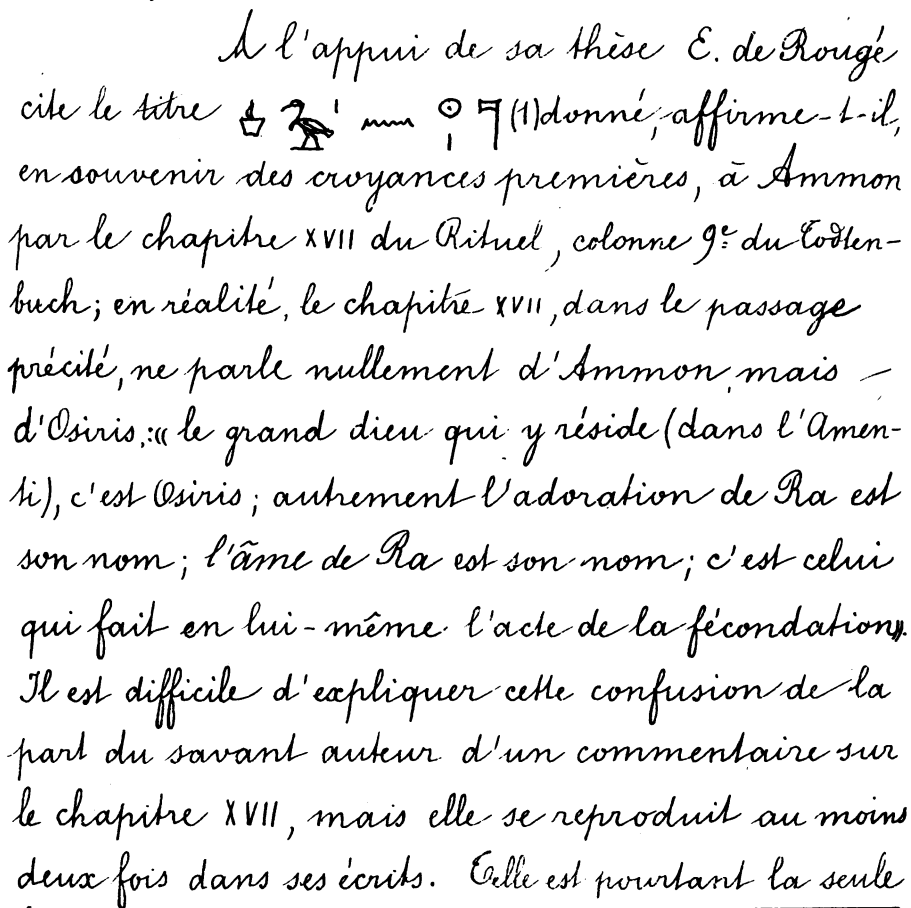 A l'appui de sa thèse E. de Rougé
cite le titre 𓊸𓅡𓏤 𓈖 𓇳𓏤 𓊹 (1) donné, affirme-t-il,
en souvenir des croyances premières, à Ammon
par le chapitre XVII du Rituel, colonne 9e du Todten-
buch; en réalité, le chapitre XVII, dans le passage
précité, ne parle nullement d'Ammon mais —
d'Osiris : « le grand dieu qui y réside (dans l'Amen-
ti), c'est Osiris; autrement l'adoration de Ra est
son nom; l'âme de Ra est son nom; c'est celui
qui fait en lui-même l'acte de la fécondation».
Il est difficile d'expliquer cette confusion de la
part du savant auteur d'un commentaire sur
le chapitre XVII, mais elle se reproduit au moins
deux fois dans ses écrits. Telle est pourtant la seule